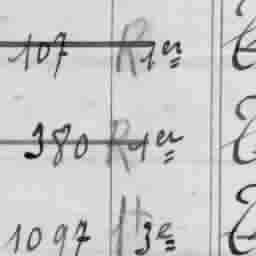 107 R 1er
380 R 1er
1097 H 3e